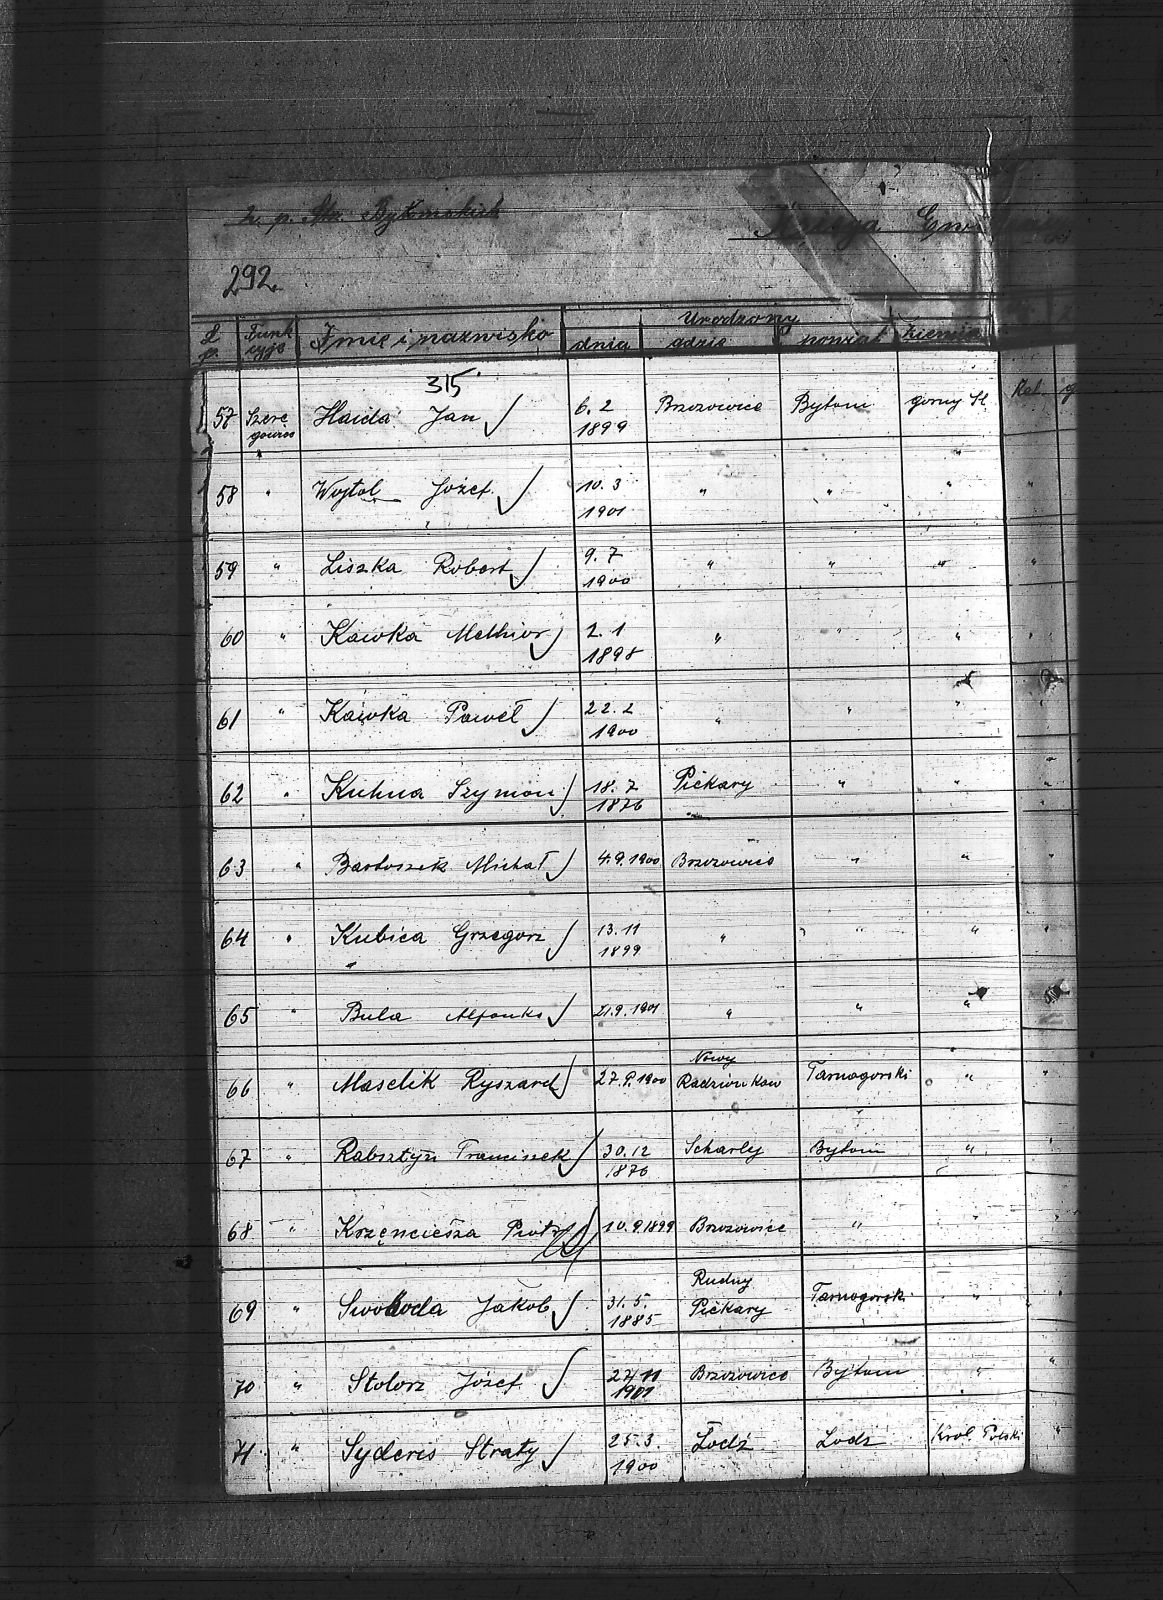 2. p. Strz. Bytomskich
Księga Ewi
292.
L. p. Funk cyja Imię i nazwisko Urodzony
dnia gdzie powiat ziemia
315
57 Szere gowiec Haida Jan 6. 2 1899 Brzozowice Bytom górny Śl. Kat.
58 " Wojtol Józef 10. 3 1901 " " " "
59 " Liszka Robert 9. 7 1900 " " " "
60 " Kawka Melhior 2. 1 1898 " " " "
61 " Kawka Paweł 22. 2 1900 " " " "
62 " Kuhna Szymon 18. 7 1876 Piekary " " "
63 " Bartoszek Michał 4.9.1900 Brzozowice " " "
64 " Kubica Grzegorz 13. 11 1899 " " " "
65 " Bula Alfonks 21.9.1901 " " "
66 " Maselik Ryszard 27.9.1900 Nowy Radzionkow Tarnogorski " "
67 " Rabsztyn Franciszek 30.12 1876 Scharley Bytom " "
68 " Krzęnciesza Piotr 10.9.1899 Brzozowice " " "
69 " Swoboda Jakob 31. 5. 1885 Rudny Piekary Tarnogorski " "
70 " Stolorz Józef 27/11 1901 Brzozowice Bytom " "
71 " Syderis Straty 25. 3. 1900 Łodź Lodź Król. Polski "